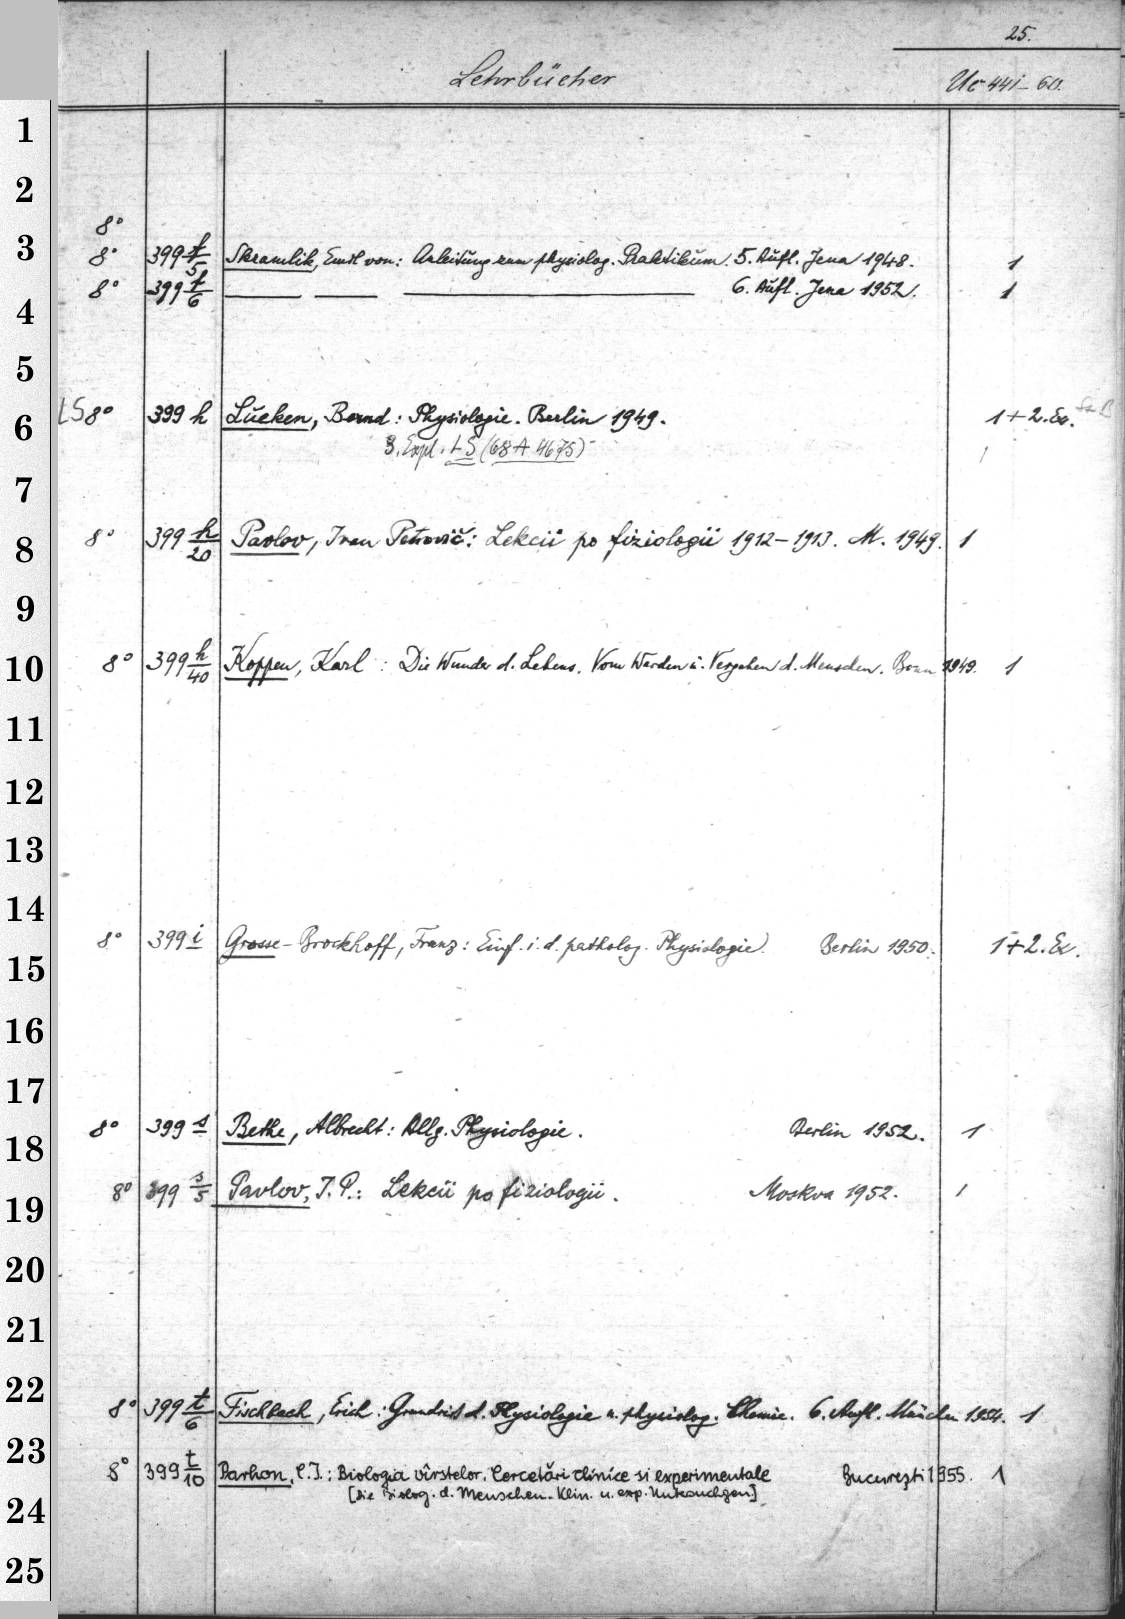 25.
Lehrbücher
Uc 441-60.
1
2
8°
3
8° 399 f/5 Skramlik, Emil von: Anleitung zum physiolog. Praktikum. 5. Aufl. Jena 1948. 1
8° 399 f/6 — — — 6. Aufl. Jena 1952. 1
4
5
LS 8° 399 h Lueken, Bernd: Physiologie. Berlin 1949. 1 + 2. Ex.
6
3. Expl. LS (68 A 4675)
7
8° 399 h/20 Pavlov, Ivan Petrovič: Lekcii po fiziologii 1912-1913. M. 1949. 1
8
9
8° 399 h/40 Koppen, Karl: Die Wunder d. Lebens. Vom Werden u. Vergehen d. Menschen. Bonn 1949. 1
10
11
12
13
14
8° 399 i Grosse-Brockhoff, Franz: Einf. i. d. patholog. Physiologie. Berlin 1950. 1 + 2. Ex.
15
16
17
8° 399 s Bethe, Albrecht: Allg. Physiologie. Berlin 1952. 1
18
8° 399 s/5 Pavlov, I. P.: Lekcii po fiziologii. Moskva 1952. 1
19
20
21
22
8° 399 t/6 Fischbach, Erich: Grundriß d. Physiologie u. physiolog. Chemie. 6. Aufl. München 1954. 1
23
8° 399 t/10 Parhon, C.I.: Biologia vîrstelor. Cercetări clinice si experimentale București 1955. 1
[Die Biolog. d. Menschen. Klin. u. exp. Untersuchgen]
24
25